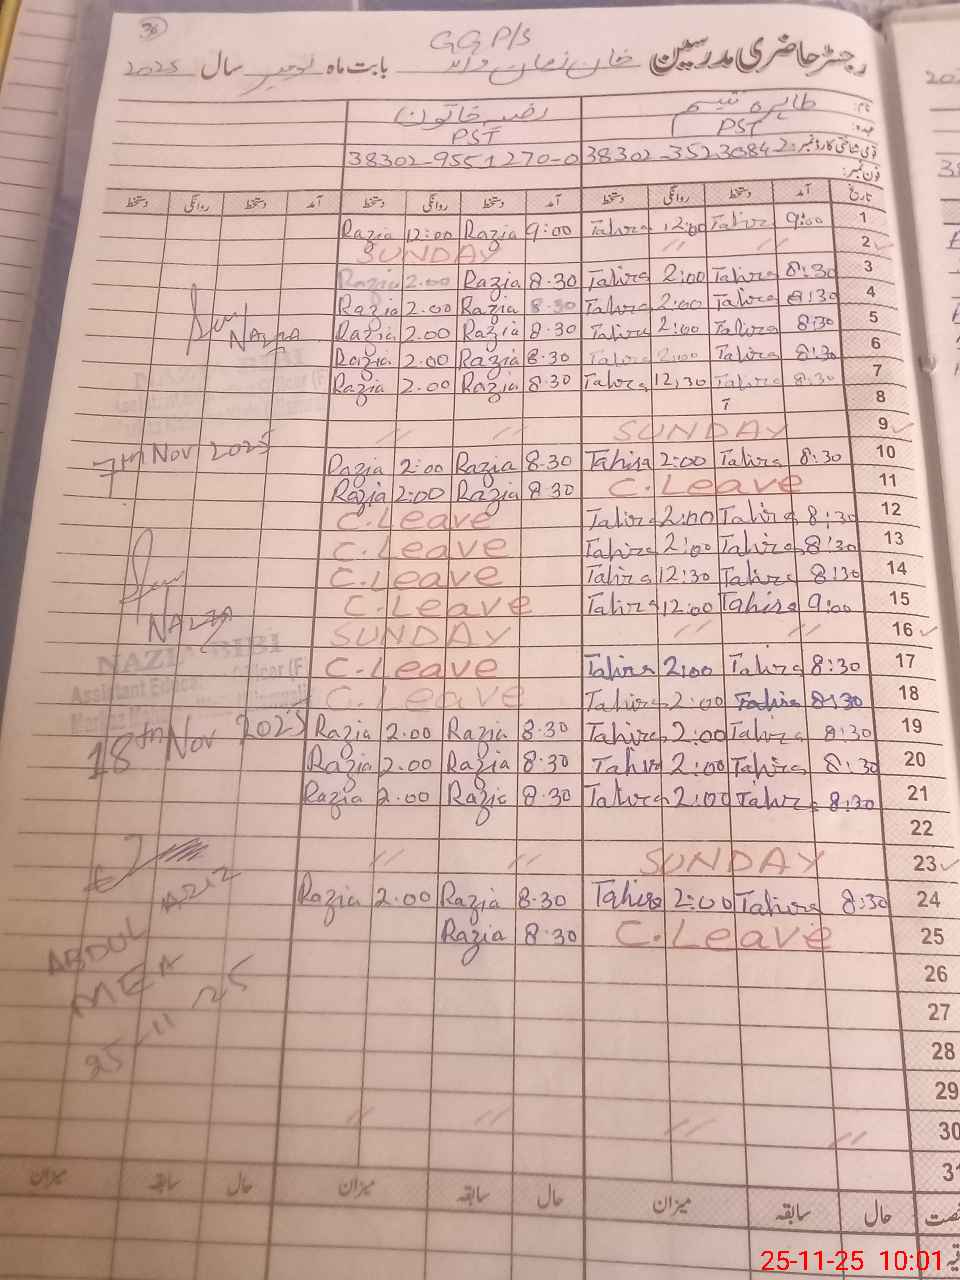 36
GGP/S
رجسٹر حاضری مدرسین خان زمان والا بابت ماہ نومبر سال 2025
نام: طاہرہ نسیم رضیہ خاتون
عہدہ: PST PST
قومی شناختی کارڈ نمبر: 38302-3523084-2 38302-9551270-0
فون نمبر:
تاریخ آمد دستخط روانگی دستخط آمد دستخط روانگی دستخط آمد دستخط روانگی دستخط
Razia 12:00 Razia 9:00 Tahira 12:00 Tahira 9:00 1
SUNDAY // // 2
Razia 2.00 Razia 8.30 Tahira 2:00 Tahira 8:30 3
Razia 2.00 Razia 8.30 Tahira 2:00 Tahira 8:30 4
Razia 2.00 Razia 8.30 Tahira 2:00 Tahira 8:30 5
NAZIA
Razia 2.00 Razia 8.30 Tahira 2:00 Tahira 8:30 6
Razia 2.00 Razia 8.30 Tahira 12,30 Tahira 8:30 7
8
// // SUNDAY 9
7th Nov 2025
Razia 2:00 Razia 8.30 Tahira 2:00 Tahira 8:30 10
Razia 2:00 Razia 8.30 C.Leave 11
C.Leave Tahira 2:00 Tahira 8:30 12
C.Leave Tahira 2:00 Tahira 8:30 13
C.Leave Tahira 12:30 Tahira 8:30 14
C.Leave Tahira 12:00 Tahira 9:00 15
NAZIA
SUNDAY // // 16
NAZIA BIBI
C.Leave Tahira 2:00 Tahira 8:30 17
Assistant Education Officer (F)
C.Leave Tahira 2:00 Tahira 8:30 18
18th Nov 2025
Razia 2.00 Razia 8.30 Tahira 2:00 Tahira 8:30 19
Razia 2.00 Razia 8.30 Tahira 2:00 Tahira 8:30 20
Razia 2.00 Razia 8.30 Tahira 2:00 Tahira 8:30 21
22
// // SUNDAY 23
Razia 2.00 Razia 8.30 Tahira 2:00 Tahira 8:30 24
Razia 8.30 C.Leave 25
ABDUL AZIZ
MEA
25-11-25
26
27
28
29
// // // // 30
31
حال سابقہ میزان حال سابقہ میزان حال سابقہ میزان
25-11-25 10:01